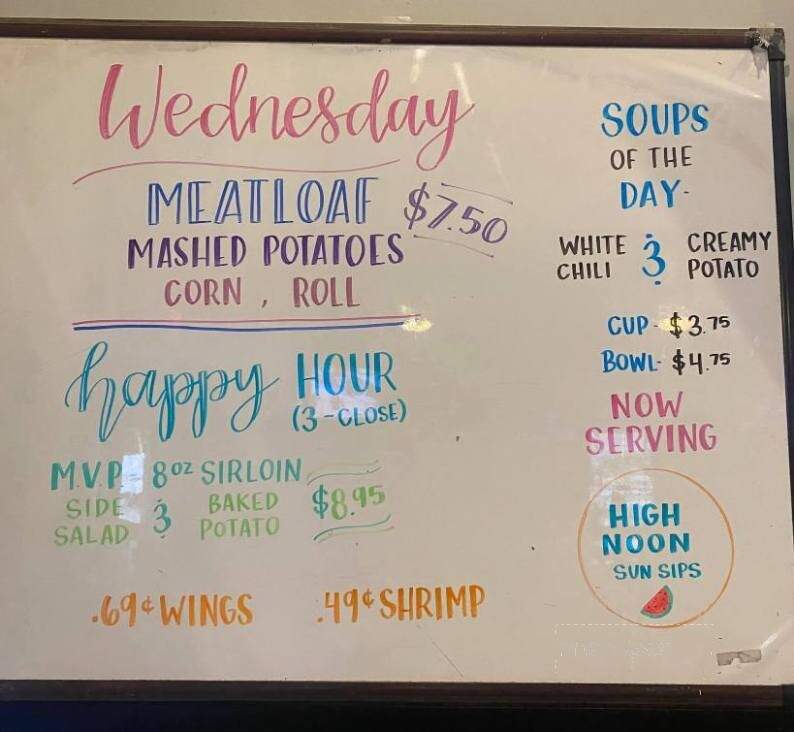 Wednesday
MEATLOAF $7.50
MASHED POTATOES
CORN, ROLL
happy HOUR
(3-CLOSE)
M.V.P- 8oz SIRLOIN
SIDE SALAD & BAKED POTATO $8.95
.69¢ WINGS .49¢ SHRIMP
SOUPS
OF THE
DAY-
WHITE CHILI & CREAMY POTATO
CUP- $3.75
BOWL- $4.75
NOW
SERVING
HIGH
NOON
SUN SIPS